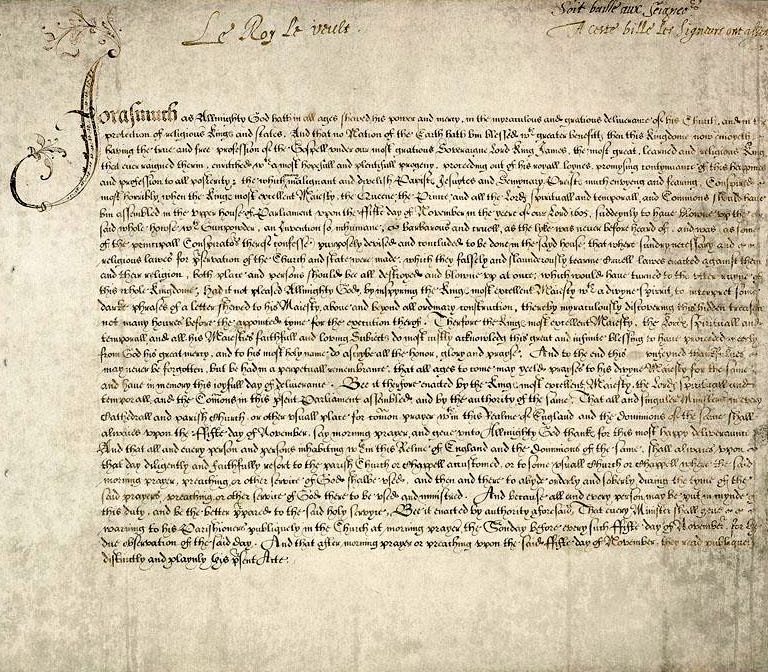 Soit baille aux Seigneurs
Le Roy le veult.
A ceste bille les Signeurs ont assen
Forasmuch as Allmighty God hath in all ages shewed his power and mercy, in the myraculous and gratious deliverance of his Church, and in the
protection of religious Kings and states. And that no Nation of the Earth hath bin blessed wth greater benefitts then this Kingdome now enioyeth
having the true and free profession of the Gospell under our most gratious Soveraigne Lord King James, the most great, learned and religious King
that ever raigned therin, enritched wth a most hopefull and plentifull progeny, proceeding out of his royall loynes, promysing contynuance of this happines
and profession to all posterity: the which malignant and divelish Papists, Jesuytes and Seminary Preists much envyeng and fearing, Conspired
most horribly when the Kings most excellent Maiesty, the Queene the Prince and all the Lords spirituall and temporall, and Commons should have
bin assembled in the upper house of Parliament upon the fifte day of November in the yeere of our Lord 1605, suddeynly to have blowne up the
said whole house wth Gunpowder, an Invention so inhumane, so barbarous and cruell, as the lyke was never before heard of, and was, as some
of the principall Conspirators therof confesse, purposely devised and concluded to be done in the sayd house, that where sundry necessary and
religious lawes for pservation of the Church and state were made, which they falsely and slaunderously tearme cruell lawes enacted against them
and their religion, both place and persons should bee all destroyed and blowne up at once, which would have turned to the utter ruyne of
this whole Kingdome, Had it not pleased Allmighty God, by inspyring the Kings most excellent Maiesty wth a divyne spirit, to interpret some
darke phrases of a letter shewed to his Maiesty, above and beyond all ordynary construction, therby myraculously discovering this hidden treason
not many houres before the appointed tyme for the execution therof. Therfore the Kings most excellent Maiesty, the Lords spirituall and
temporall and all his Maiesties faithfull and loving Subiects do most iustly acknowledg this great and infinite blessing to have proceeded merely
from God his great mercy, and to his most holy name do ascrybe all the honor, glory and prayse. And to the end this unfeyned thankfulnes
may never be forgotten, but be had in a perpetuall remembrance, that all ages to come may yeeld prayses to his divyne Maiesty for the same
and have in memory this ioyfull day of deliverance. Bee it therfore enacted by the Kings most excellent Maiesty, the Lords spirituall and
temporall, and the Comons in this psent Parliament assembled and by the authority of the same, That all and singuler Ministers in every
Cathedrall and parish Church or other usuall place for comon prayer wthin this Realme of England and the Dominions of the same shall
alwaies upon the fifte day of November, say morning prayer, and geve unto Allmighty God thanks for this most happy deliverance
And that all and every person and persons inhabiting wthin this Realme of England and the Dominions of the same, shall alwaies upon
that day diligently and faithfully resort to the parish Church or Chappell accustomed, or to some usuall Church or Chappell where the said
morning prayer, preaching, or other service of God shalbe used, and then and there to abyde orderly and soberly during the tyme of the
said prayers, preaching or other service of God there to be used and ministred. And because all and every person may be put in mynde of
this duty, and be the better ppared to the said holy service, Bee it enacted by authority aforesaid, That every Minister shall geve
warning to his Parishioners publiquely in the Church at morning prayer, the Sonday before every such fifte day of November, for the
due observation of the said day. And that after morning prayer or preaching upon the said fifte day of November, they read publiquely
distinctly and playnly this psent Acte.